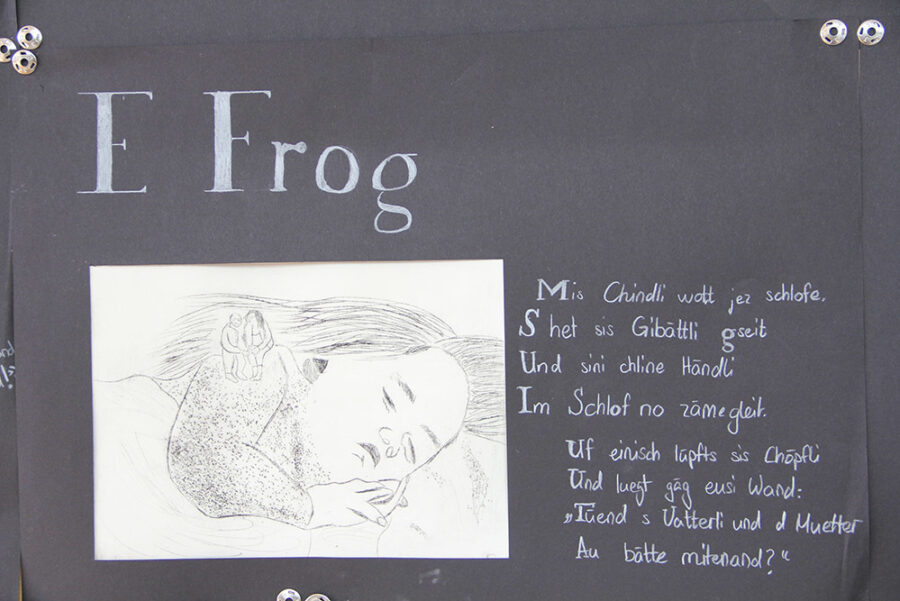 E Frog
Mis Chindli wott jez schlofe,
S het sis Gibättli gseit
Und sini chline Händli
Im Schlof no zämegleit.
Uf einisch lüpfts sis Chöpfli
Und luegt gäg eusi Wand:
„Tüend s Vatterli und d Muetter
Au bätte mitenand?“